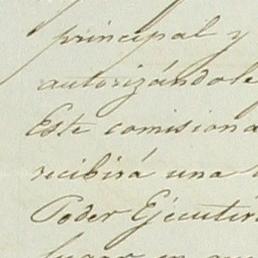 principal y
autorizándole
Este comisiona
recibirá una
Poder Ejecutiv
lugar en